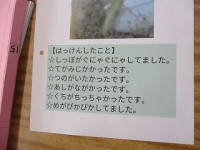 【はっけんしたこと】
☆しっぽがぐにゃぐにゃしてました。
☆てがみじかかったです。
☆つのがいたかったです。
☆あしがながかったです。
☆くちがちっちゃかったです。
☆めがぴかぴかしてました。